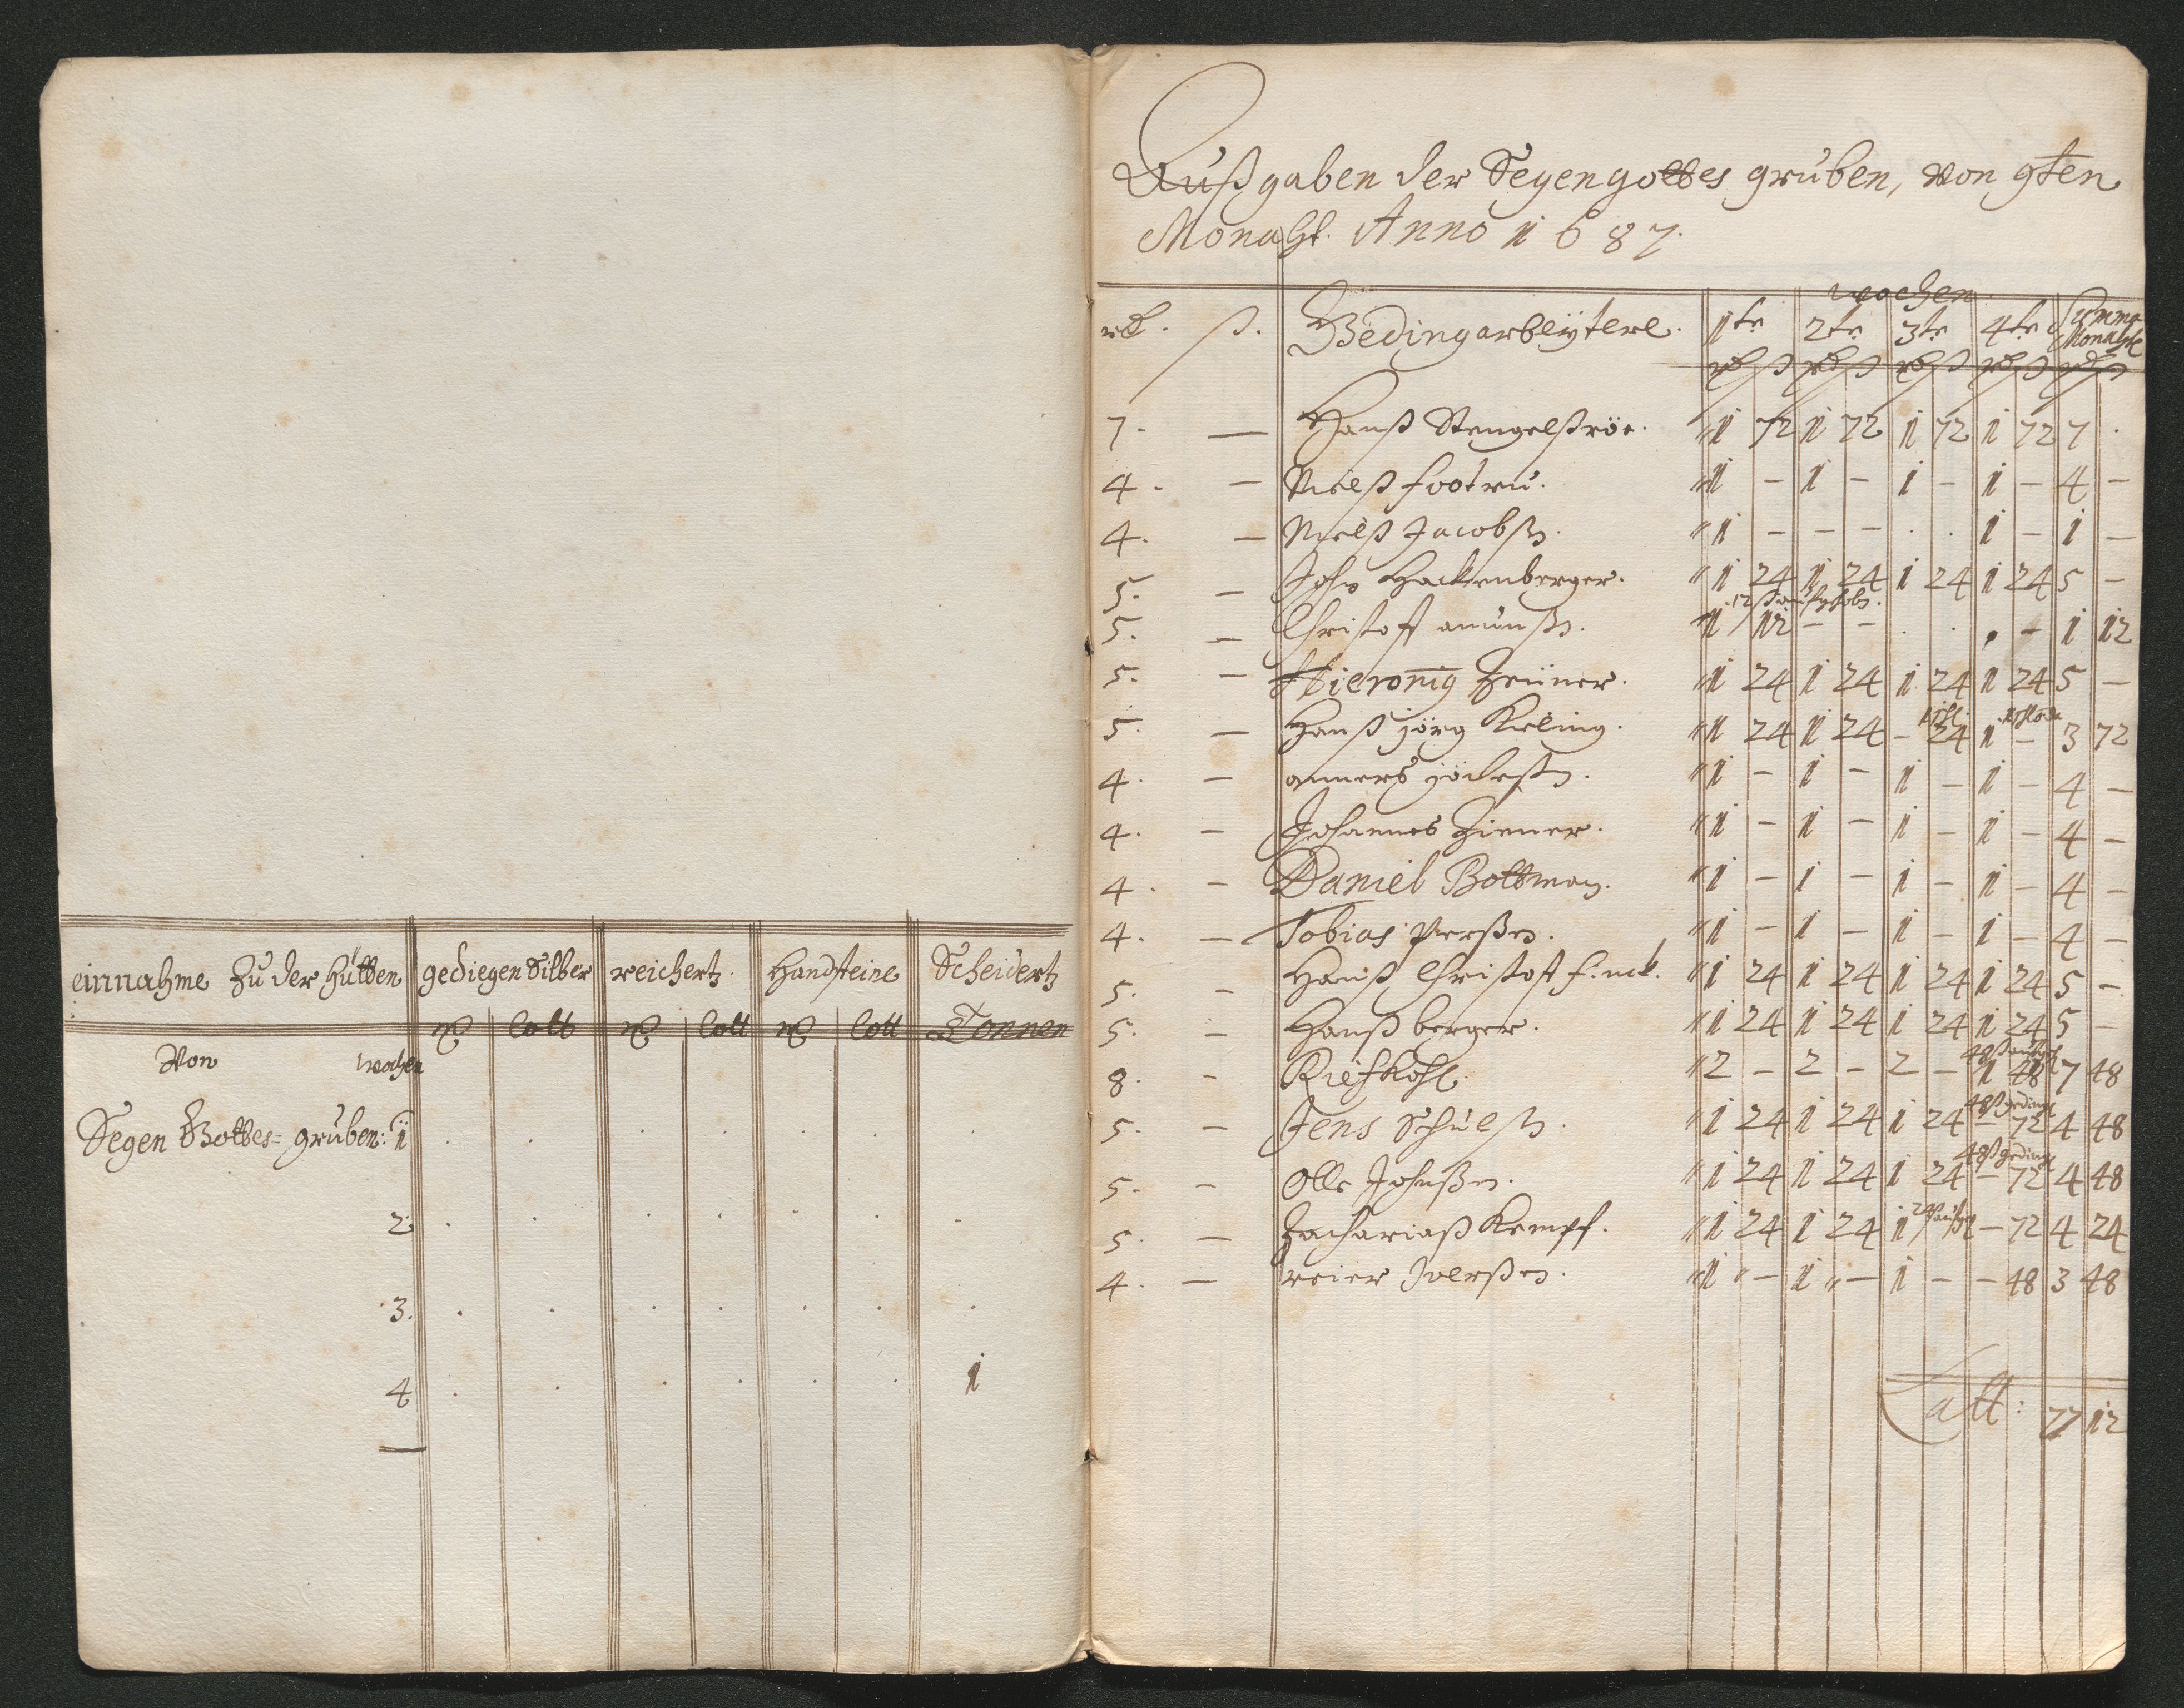 einnahme Zu der Hütten gediegen Silber reichertz. Handsteine Scheidertz
℔ Lott ℔ Lott ℔ Lott Tonnen
Von wochen
Segen Gottes= gruben: 1 . . . . . . .
2 . . . . . . .
3. . . . . . . .
4 . . . . . . 1
Außgaben der Segengottes gruben, von 9ten
Monaht. Anno 1687.
wochen
rd. ß. Bedingarbeÿtere. 1te 2te 3te 4te Summa Monahte
rd ß rd ß rd ß rd ß rd ß
7. — Hanß Stengelströe. 1 72 1 72 1 72 1 72 7 .
4. — Nielß footnu. 1 – 1 – 1 – 1 – 4 –
4. — Nielß Jacobßn. 1 – – – . . 1 – 1 –
5. – John Hackenberger. 1 24 1 24 1 24 1 24 5 –
5. – Christoff 1 12 – – . . . – 1 12
5. – Hieronig Zeüner. 1 24 1 24 1 24 1 24 5 –
5. – Hanß jörg Kieling. 1 24 1 24 – 24 1 – 3 72
4. – anners 1 – 1 – 1 – 1 – 4 –
4. – Johannes Ziener. 1 – 1 – 1 – 1 – 4 –
4. – Daniel Bottman. 1 – 1 – 1 – 1 – 4 –
4. – Tobias Perßen. 1 – 1 – 1 – 1 – 4 –
5. – Hanß Christoff finck. 1 24 1 24 1 24 1 24 5 –
5. – Hanß berger. 1 24 1 24 1 24 1 24 5 –
8. – Riefkohl. 2 – 2 – 2 – 1 48 7 48
48ß geding
5. – Jens Schulß. 1 24 1 24 1 24 – 72 4 48
48ß geding
5. – Olle Johnßen. 1 24 1 24 1 24 – 72 4 48
5. – Zachariaß Kempf. 1 24 1 24 1 – 72 4 24
4. – reier Iverßen. 1 – 1 – 1 – – 48 3 48
Latt: 77 12